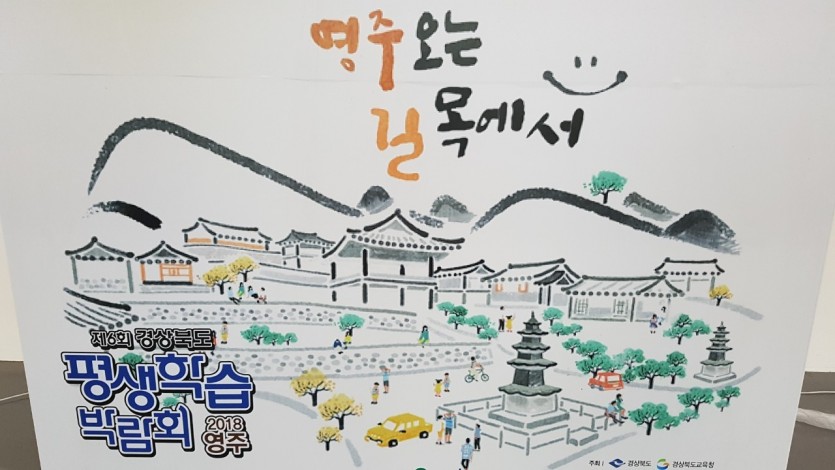 영주 오는
길목에서
제6회 경상북도
평생학습
박람회 2018 영주
주최 | 경상북도 경상북도교육청